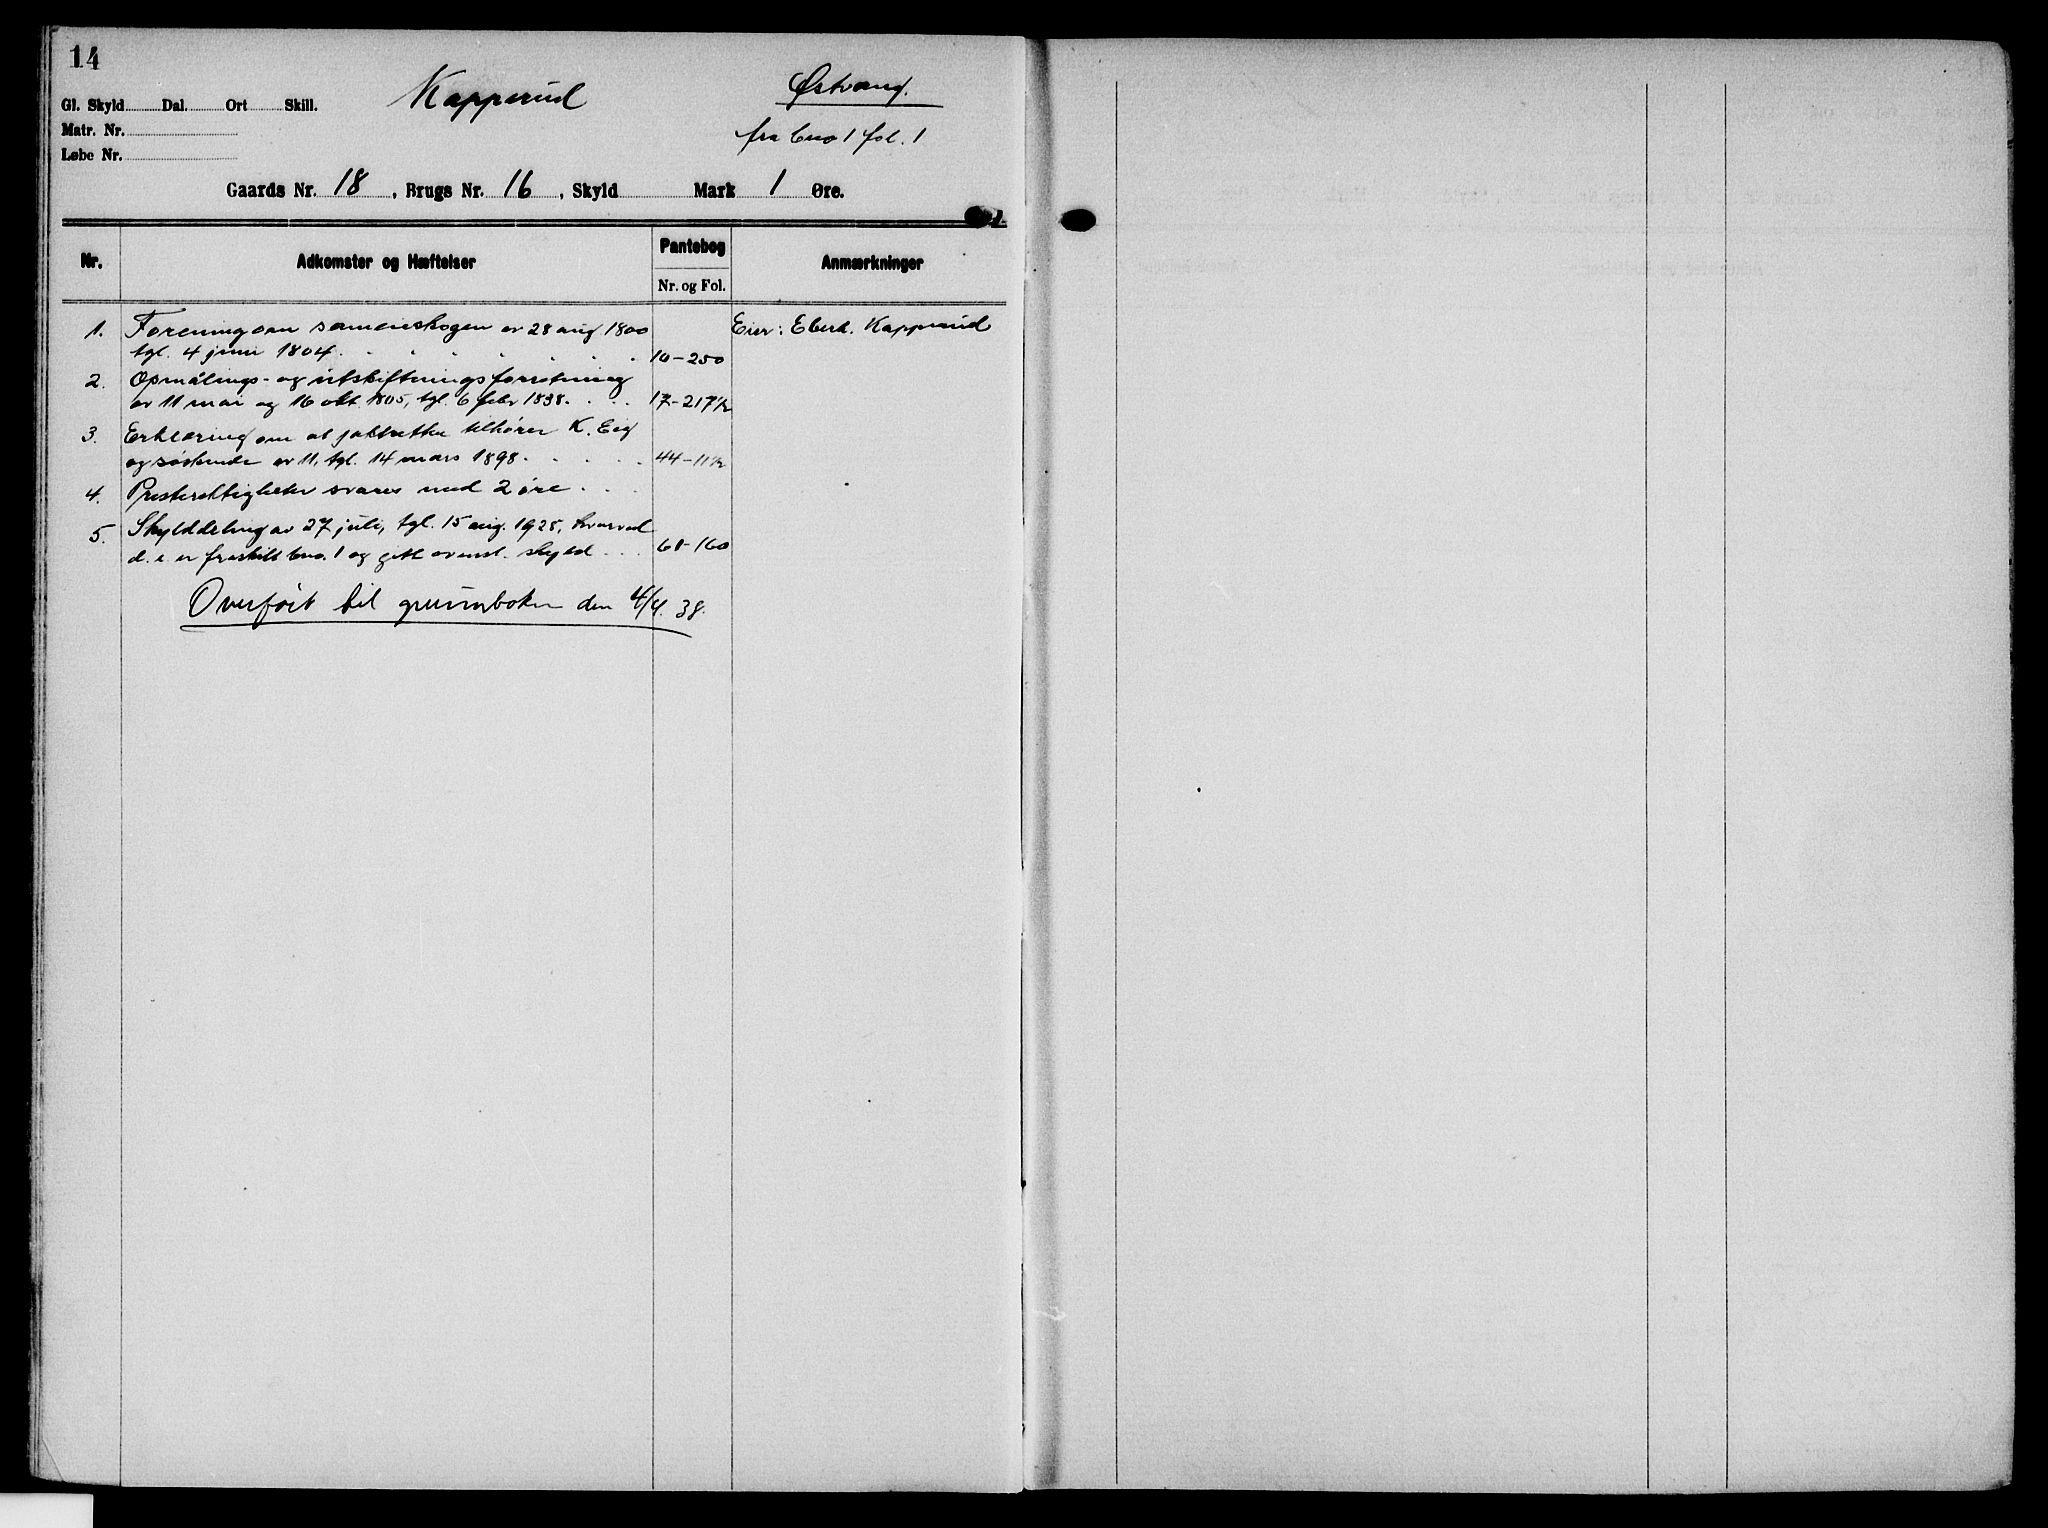 14
Gl. Skyld Dal. Ort Skill.
Kapperud
Østvang.
Matr. Nr.
fra bno 1 fol. 1
Løbe Nr.
Gaards Nr. 18, Brugs Nr. 16, Skyld Mark 1 Øre.
Nr. Adkomster og Hæftelser Pantebog Nr. og Fol. Anmærkninger
1. Forening om sameieskogen av 28 aug 1800 Eier: Kapperud
tgl. 4 juni 1804. 10-250
2. Opmålings- og utskiftningsforretning
av 11 mai og 16 okt. 1805, tgl. 6 febr 1838. 17-217½
3. Erklæring om at jaktretten tilhører K. Eeg
og søskende av 11, tgl. 14 mars 1898. 44-11½
4. Presterettigheter svares med 2 øre
5. Skylddeling av 27 juli, tgl. 15 aug. 1928, hvorved
d. e. er fraskilt bno. 1 og gitt ovenst. skyld 61-160
Overført til grunnboken den 4/4. 38.